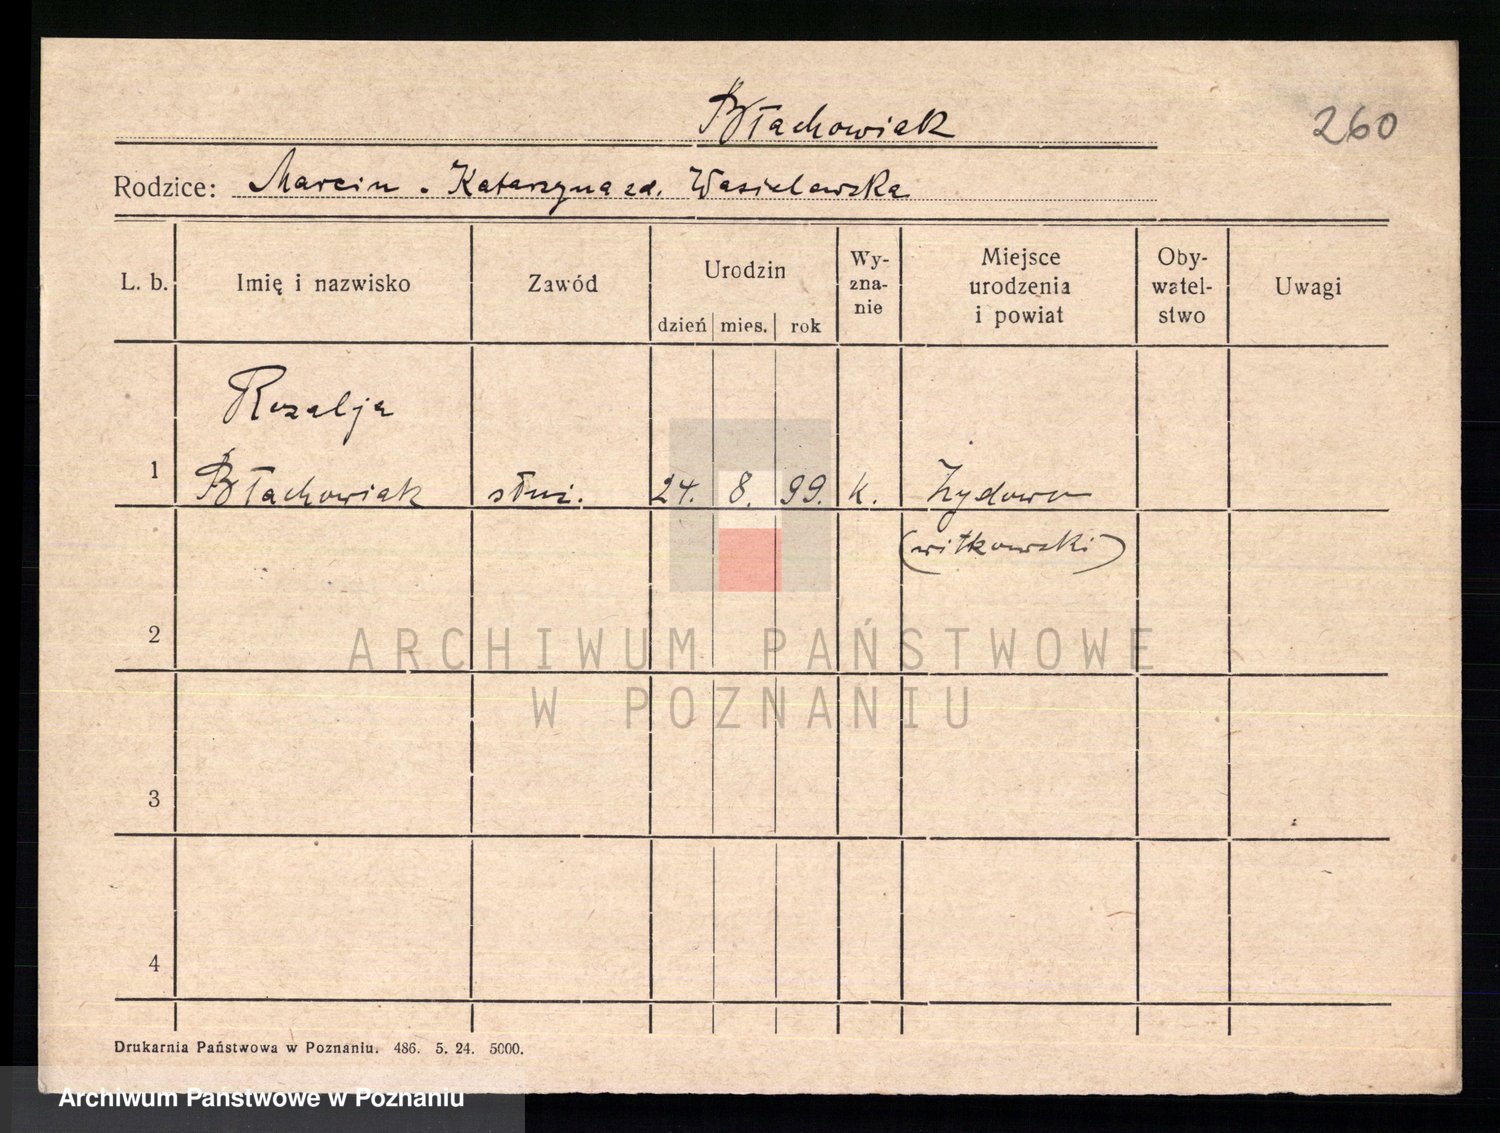 Błachowiak
260
Rodzice: Marcin . Katarzyna zd. Wasielewska
L. b. Imię i nazwisko Zawód Urodzin dzień mies. rok Wy-zna-nie Miejsce urodzenia i powiat Oby-watel-stwo Uwagi
Rozalja
1 Błachowiak służ. 24. 8. 99. k. Żydowo
(witkowski)
2
ARCHIWUM PAŃSTWOWE
W POZNANIU
3
4
Drukarnia Państwowa w Poznaniu. 486. 5. 24. 5000.
Archiwum Państwowe w Poznaniu